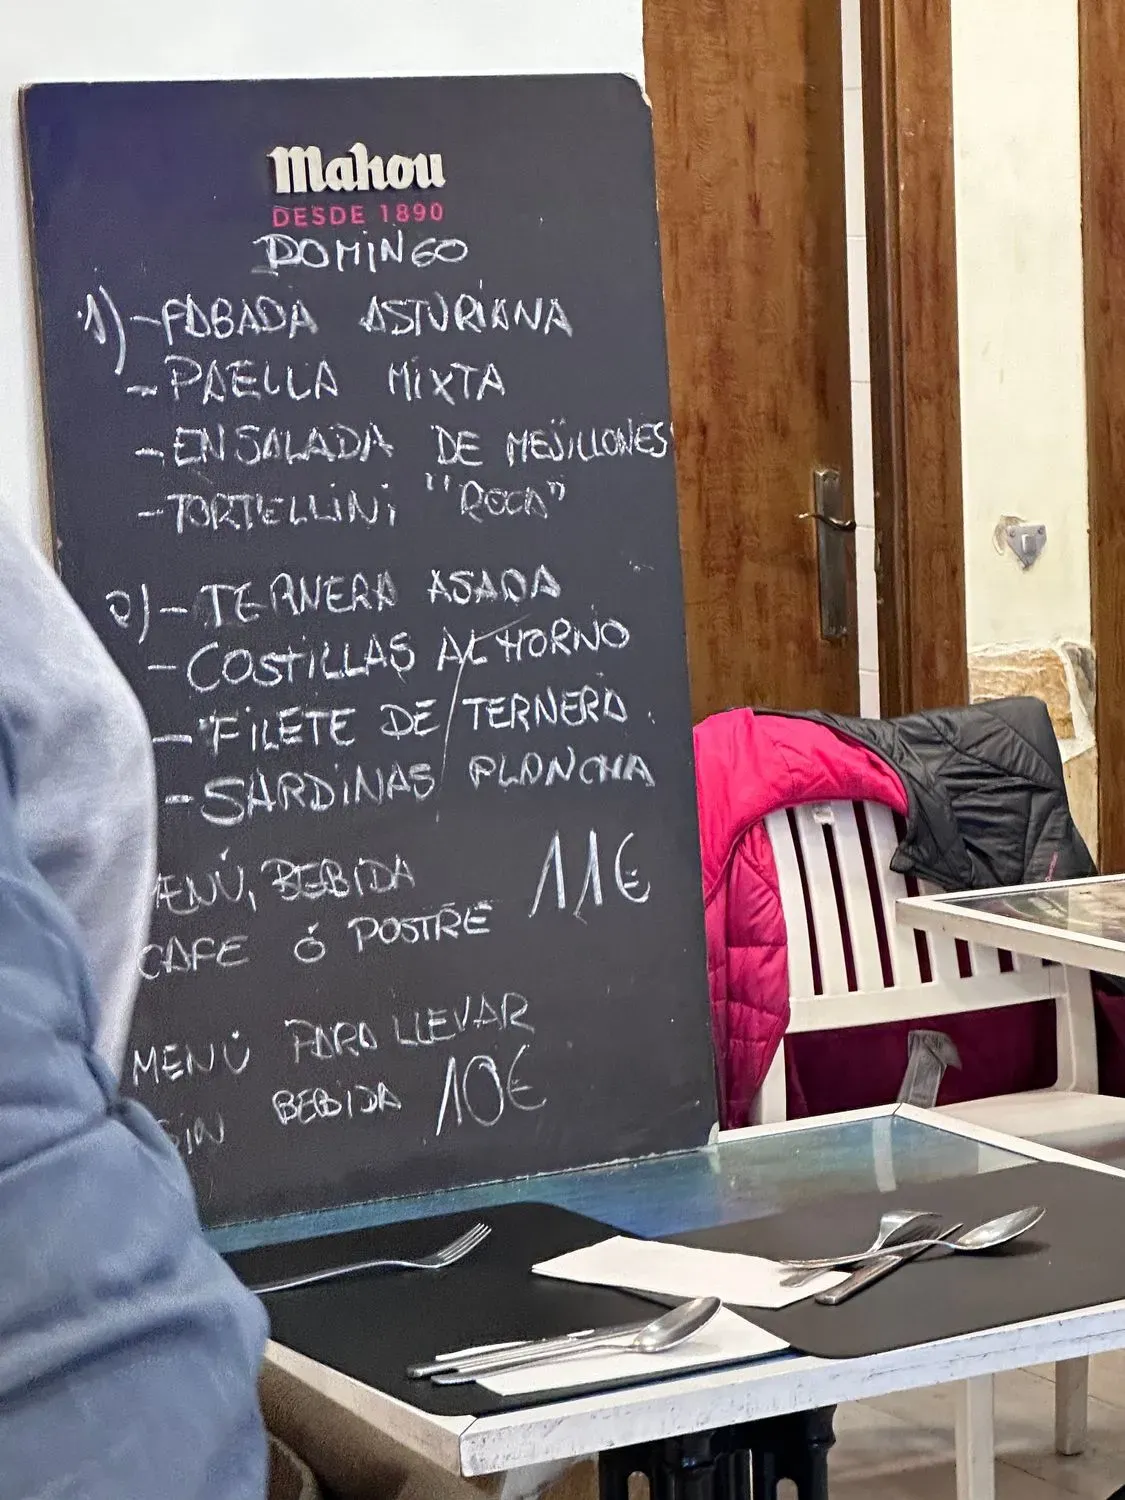 Mahou
DESDE 1890
DOMINGO
1) - FABADA ASTURIANA
- PAELLA MIXTA
- ENSALADA DE MEJILLONES
- TORTELLINI "ROCA"
2) - TERNERA ASADA
- COSTILLAS AL HORNO
- FILETE DE TERNERA
- SARDINAS PLANCHA
MENÚ, BEBIDA 11€
CAFE Ó POSTRE
MENÚ PARA LLEVAR
SIN BEBIDA 10€